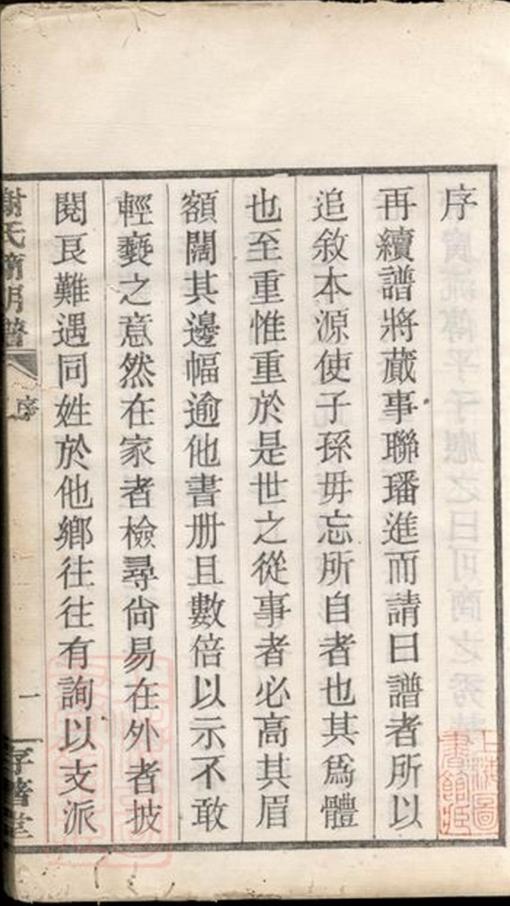 序
再續譜將蕆事聯璠進而請曰譜者所以
追敘本源使子孫毋忘所自者也其爲體
也至重惟重於是世之從事者必高其眉
額闊其邊幅逾他書册且數倍以示不敢
輕褻之意然在家者檢尋尙易在外者披
閱良難遇同姓於他鄉往往有詢以支派
謝氏簡明譜
序
一
上海圖書館藏